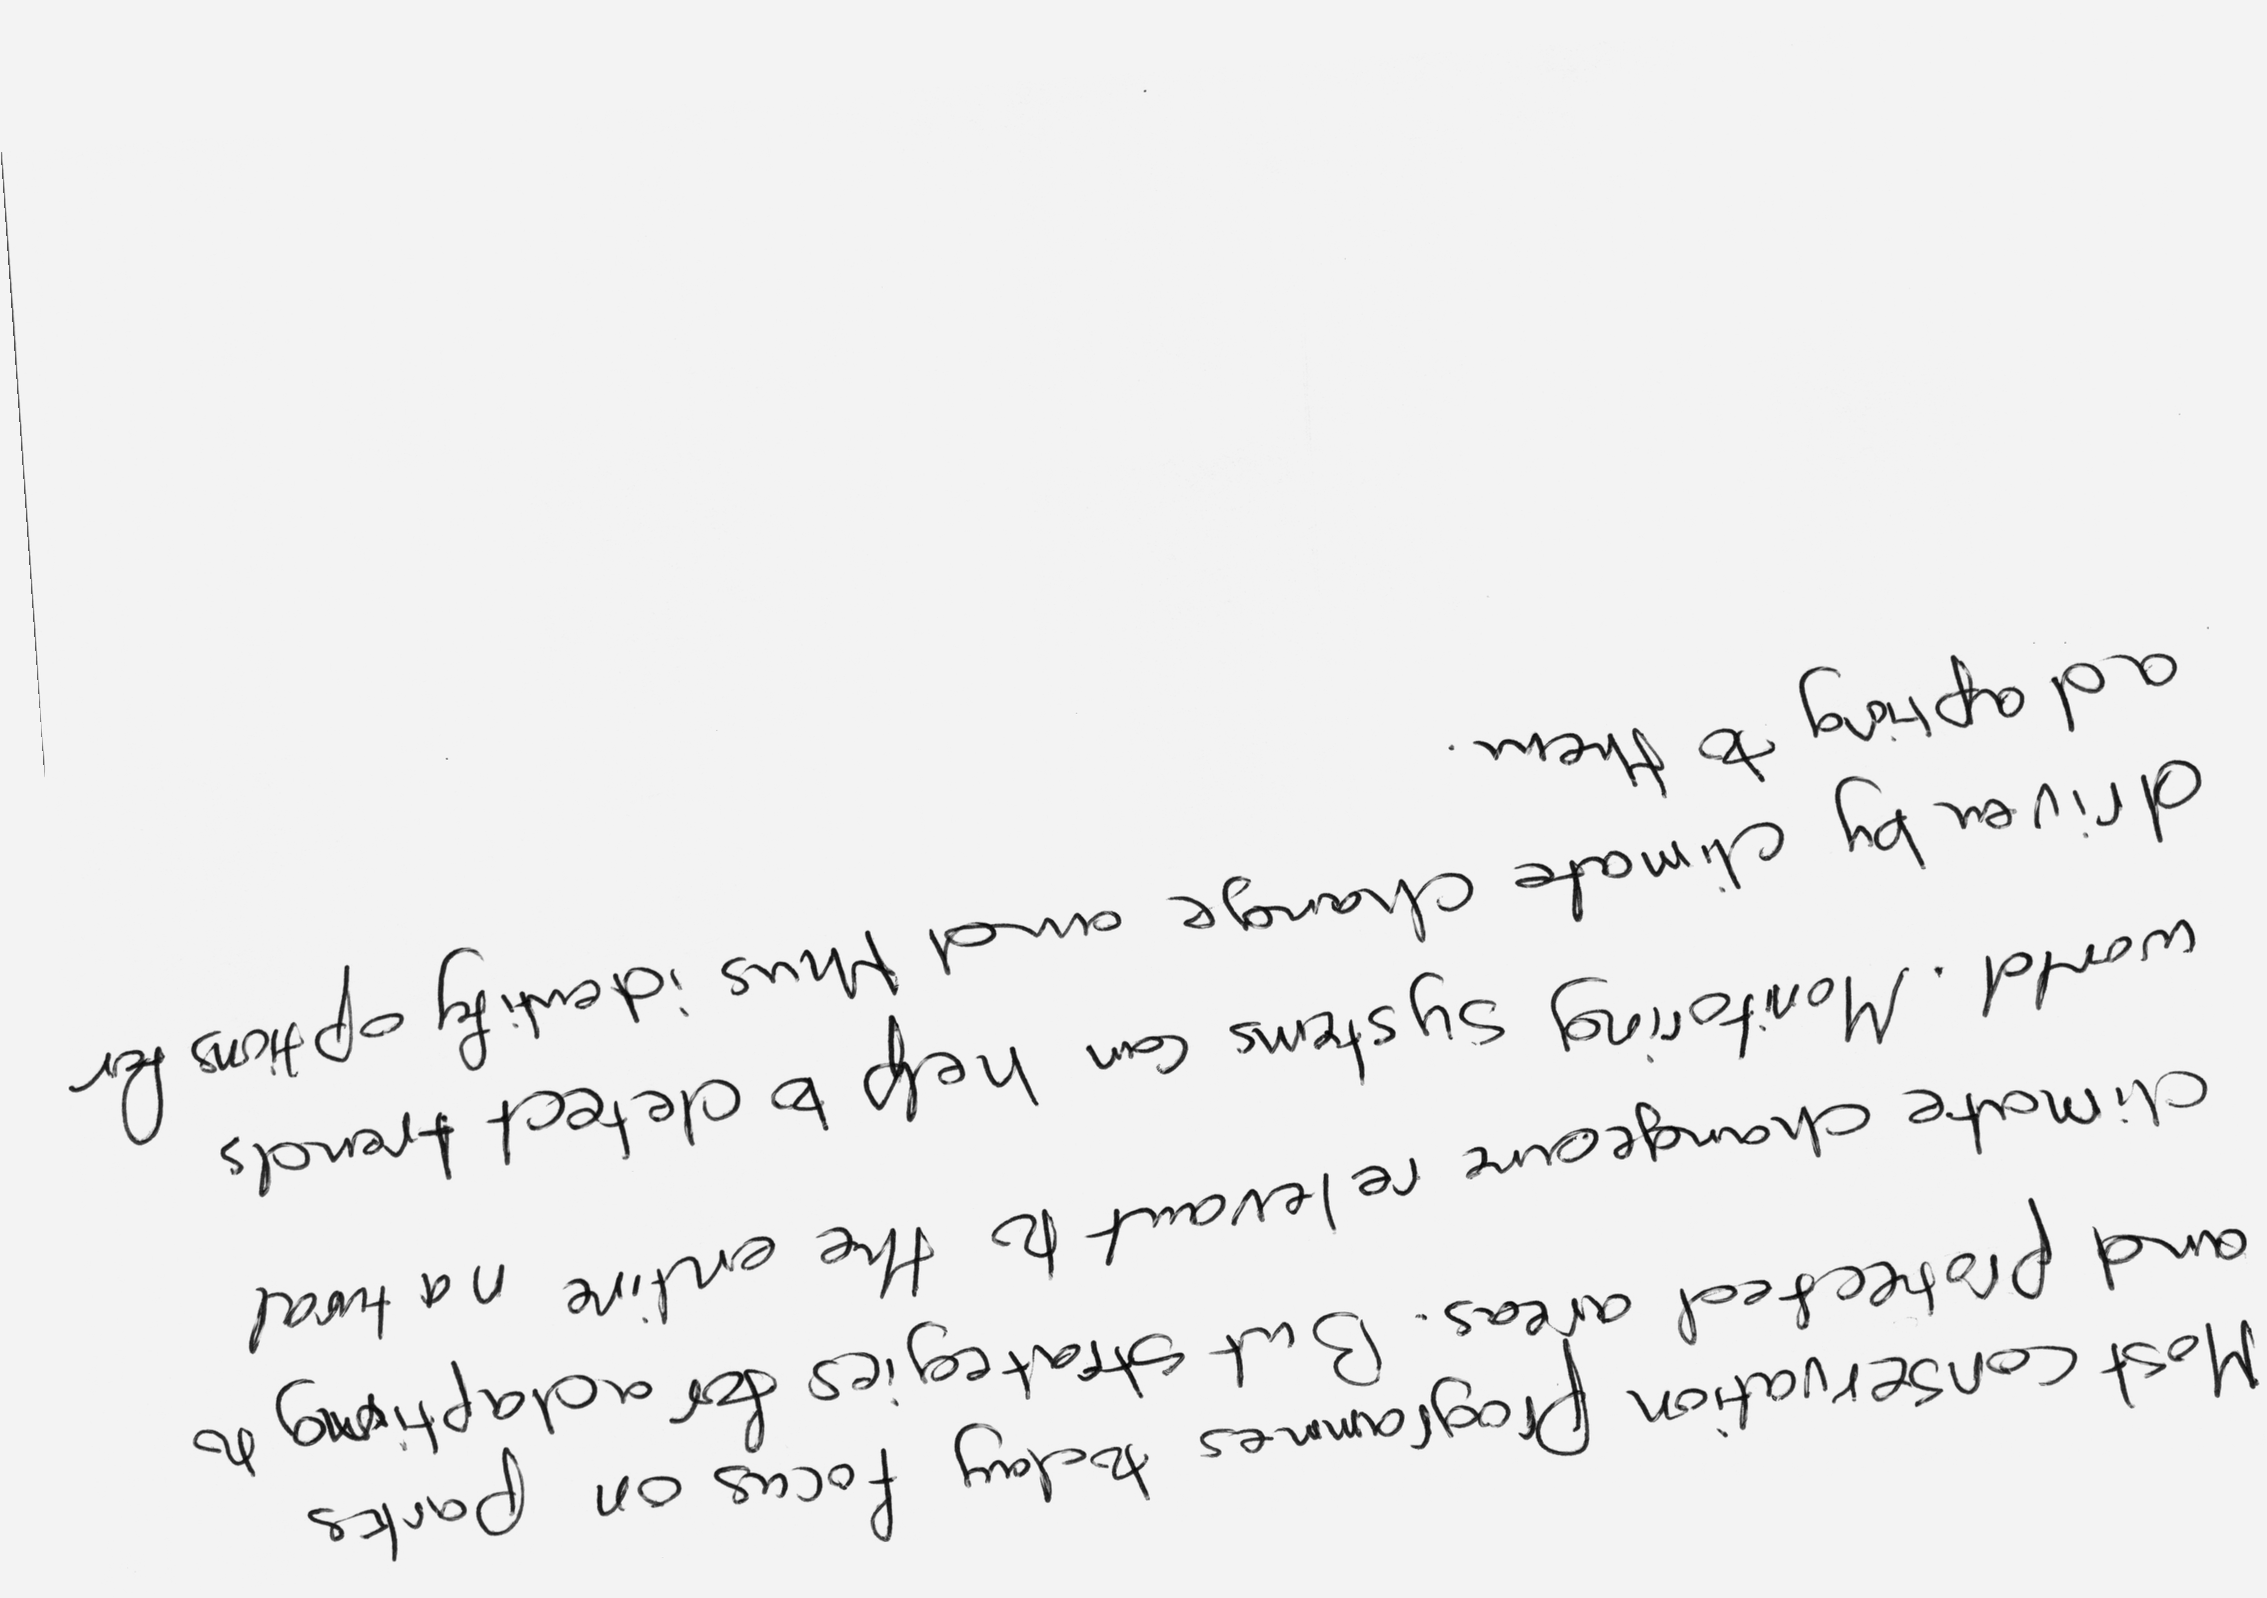 Most conservation programmes today focus on parks
and protected areas. But strategies for adapting to
climate change are relevant to the entire natural
world. Monitoring systems can help to detect trends
driven by climate change and thus identify options for
adapting to them.